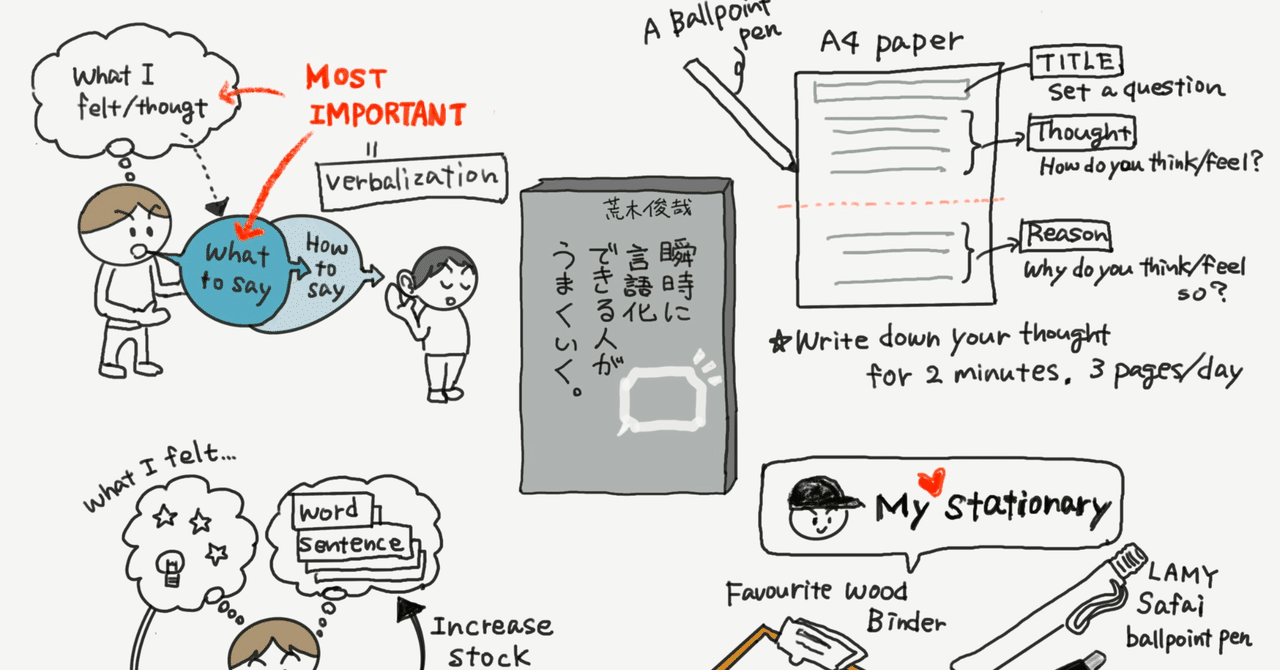 What I
felt/thougt
MOST
IMPORTANT
=
verbalization
What
to say
How
to
say
荒木俊哉
瞬時に
言語化
できる人が
うまくいく。
A Ballpoint
pen
A4 paper
TITLE
Set a question
Thought
How do you think/feel?
Reason
Why do you think/feel
so?
☆Write down your thought
for 2 minutes. 3 pages/day
What I felt...
word
sentence
Increase
stock
My Stationary
Favourite wood
Binder
LAMY
Safai
ballpoint pen